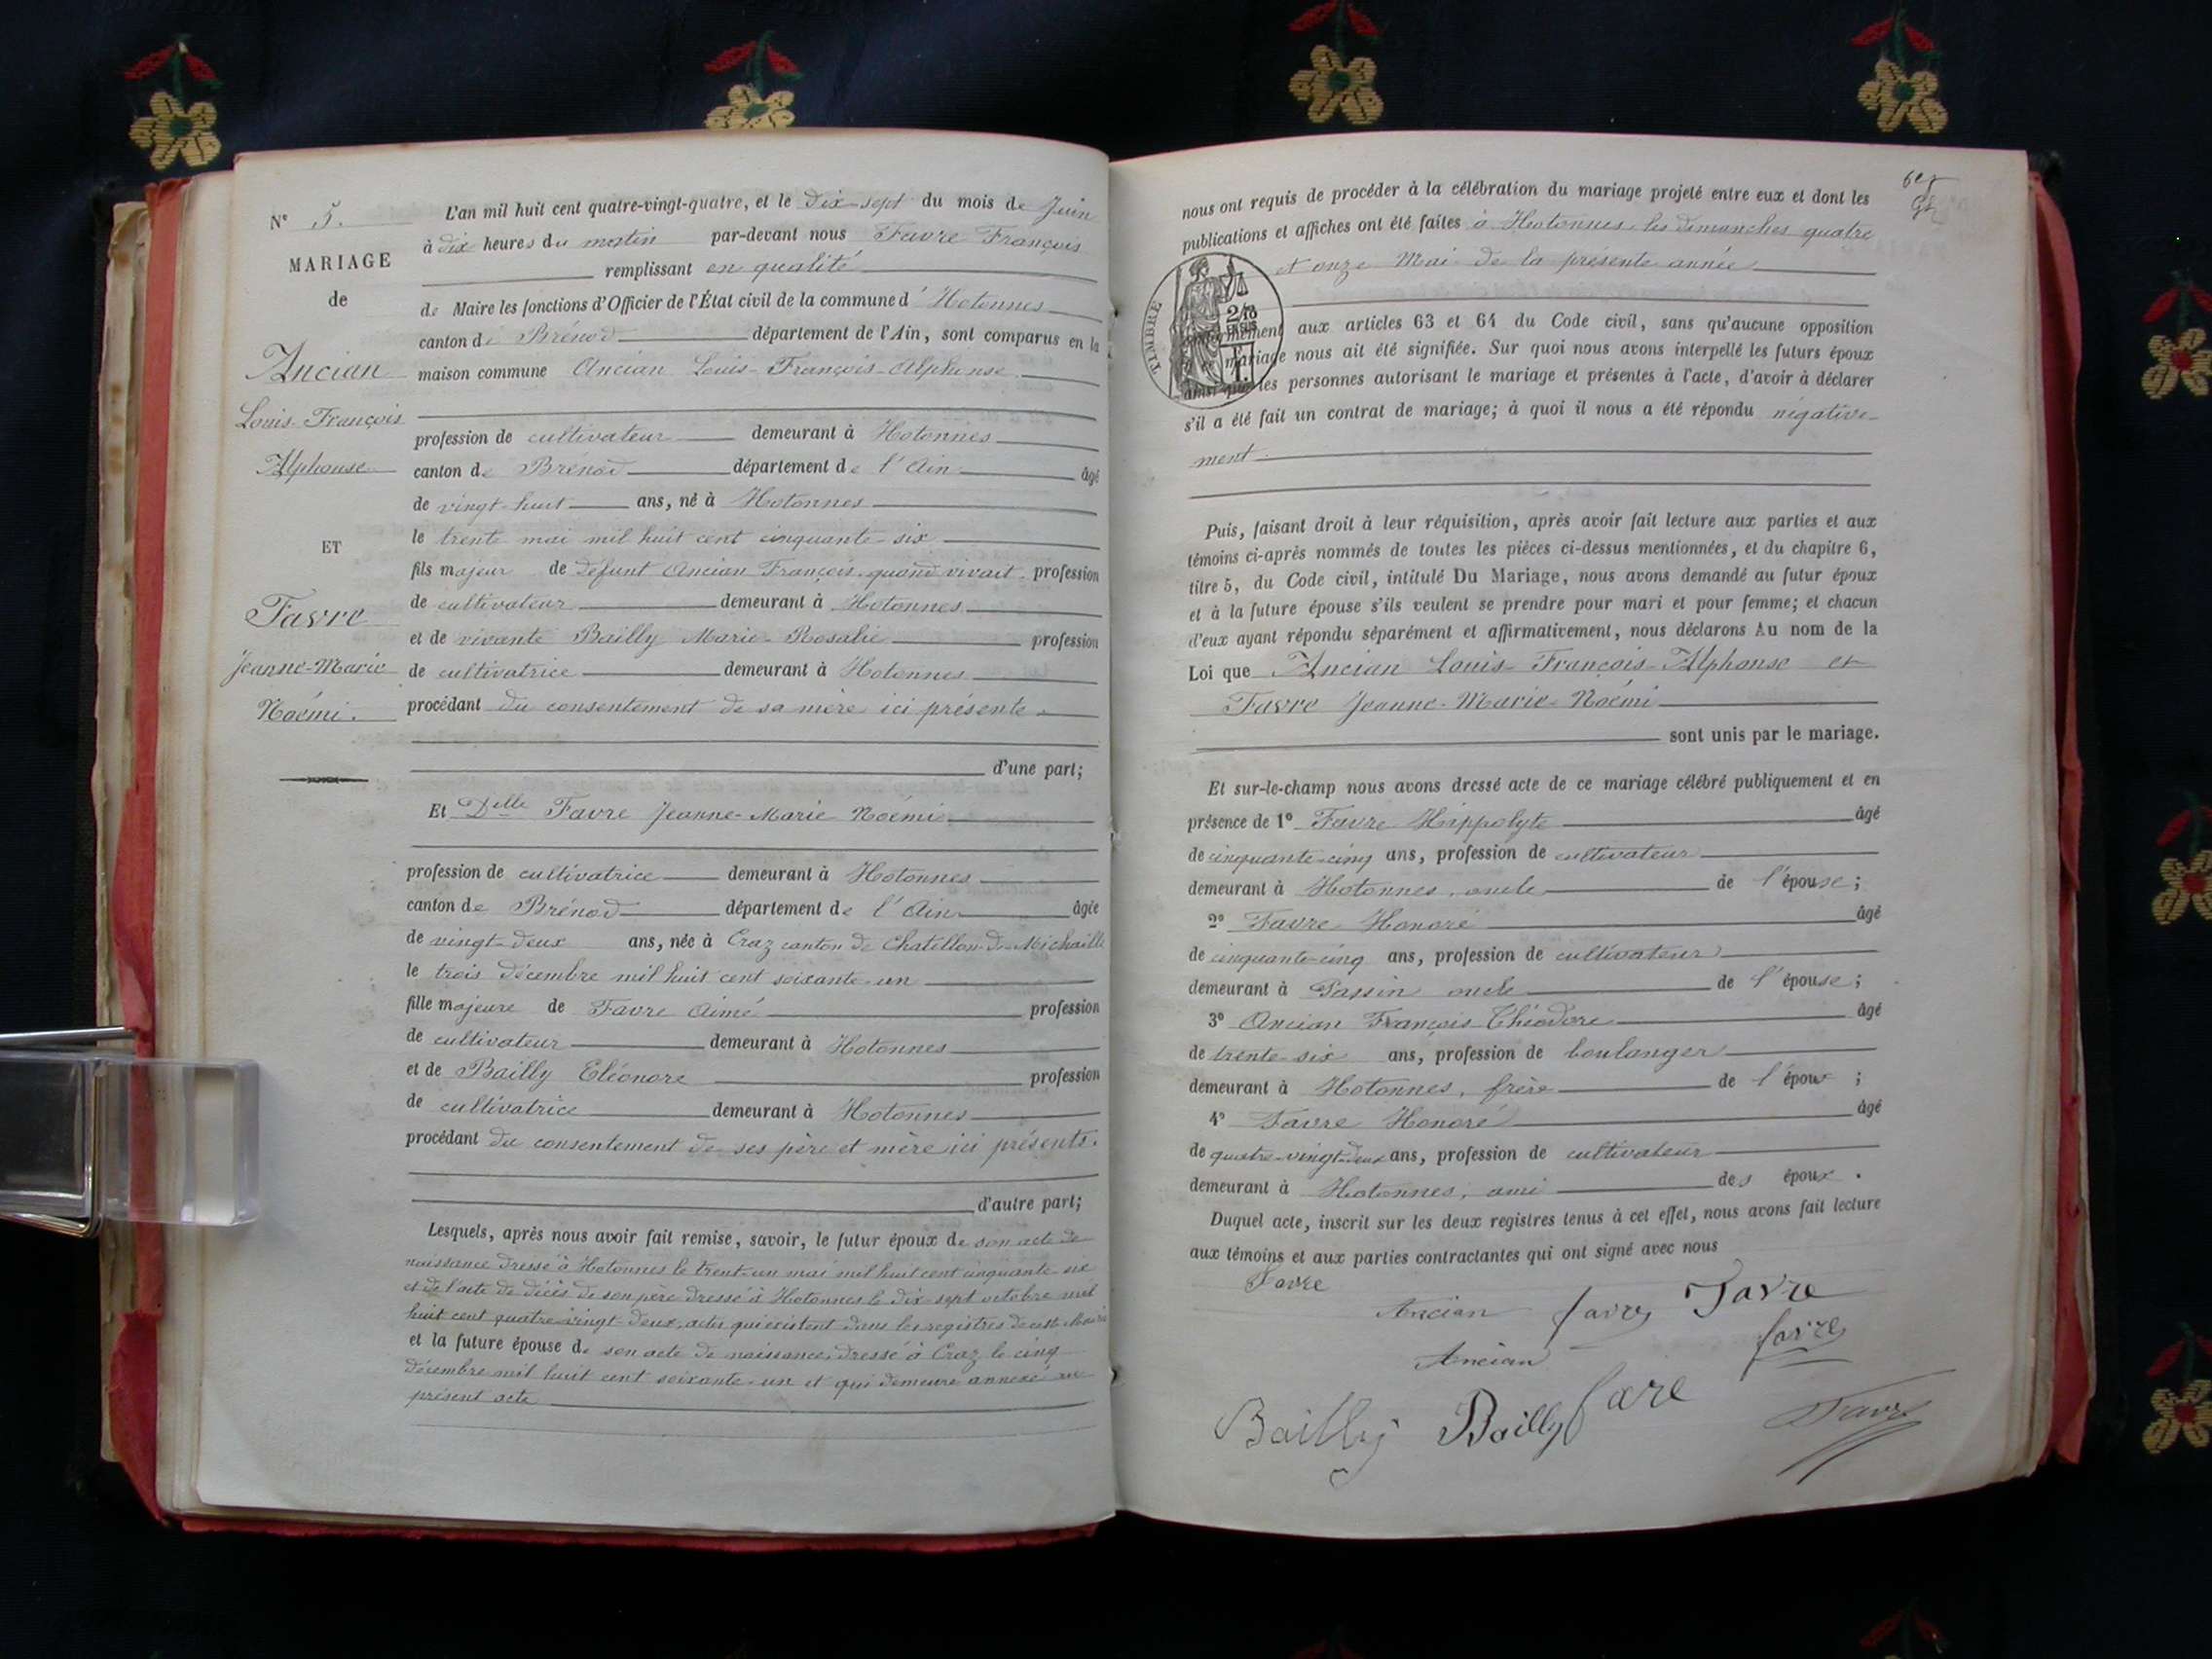 N° 5.
MARIAGE
de
Ancian
Louis-François
Alphonse
ET
Favre
Jeanne-Marie
Noémi.
L'an mil huit cent quatre-vingt-quatre, et le dix-sept du mois de Juin
à dix heures du matin par-devant nous Favre François
remplissant en qualité
de Maire les fonctions d'Officier de l'État civil de la commune d'Hotonnes
canton de Brénod département de l'Ain, sont comparus en la
maison commune Ancian Louis-François-Alphonse
profession de cultivateur demeurant à Hotonnes
canton de Brénod département de l'Ain âgé
de vingt-huit ans, né à Hotonnes
le trente mai mil huit cent cinquante-six
fils majeur de défunt Ancian François, quand vivait, profession
de cultivateur demeurant à Hotonnes
et de vivante Bailly Marie-Rosalie profession
de cultivatrice demeurant à Hotonnes
procédant du consentement de sa mère ici présente.
d'une part;
Et Delle Favre Jeanne-Marie Noémi
profession de cultivatrice demeurant à Hotonnes
canton de Brénod département de l'Ain âgée
de vingt-deux ans, née à Craz canton de Chatillon-de-Michaille
le trois décembre mil huit cent soixante-un
fille majeure de Favre Aimé profession
de cultivateur demeurant à Hotonnes
et de Bailly Eléonore profession
de cultivatrice demeurant à Hotonnes
procédant du consentement de ses père et mère ici présents.
d'autre part;
Lesquels, après nous avoir fait remise, savoir, le futur époux de son acte de
naissance dressé à Hotonnes le trent-un mai mil huit cent cinquante-six
et de l'acte de décès de son père dressé à Hotonnes le dix-sept octobre mil
huit cent quatre-vingt-deux, actes qui existent dans les registres de cette Mairie
et la future épouse de son acte de naissance, dressé à Craz le cinq
décembre mil huit cent soixante-un et qui demeure annexé au
présent acte
nous ont requis de procéder à la célébration du mariage projeté entre eux et dont les
publications et affiches ont été faites à Hotonnes les dimanches quatre
et onze Mai de la présente année
TIMBRE
conformément aux articles 63 et 64 du Code civil, sans qu'aucune opposition
mariage nous ait été signifiée. Sur quoi nous avons interpellé les futurs époux
ainsi que les personnes autorisant le mariage et présentes à l'acte, d'avoir à déclarer
s'il a été fait un contrat de mariage; à quoi il nous a été répondu négative-
ment.
Puis, faisant droit à leur réquisition, après avoir fait lecture aux parties et aux
témoins ci-après nommés de toutes les pièces ci-dessus mentionnées, et du chapitre 6,
titre 5, du Code civil, intitulé Du Mariage, nous avons demandé au futur époux
et à la future épouse s'ils veulent se prendre pour mari et pour femme; et chacun
d'eux ayant répondu séparément et affirmativement, nous déclarons Au nom de la
Loi que Ancian Louis-François-Alphonse et
Favre Jeanne-Marie-Noémi
sont unis par le mariage.
Et sur-le-champ nous avons dressé acte de ce mariage célébré publiquement et en
présence de 1° Favre Hippolyte âgé
de cinquante-cinq ans, profession de cultivateur
demeurant à Hotonnes, oncle de l'épouse;
2° Favre Honoré âgé
de cinquante-cinq ans, profession de cultivateur
demeurant à Passin oncle de l'épouse;
3° Ancian François Théodore âgé
de trente-six ans, profession de boulanger
demeurant à Hotonnes, frère de l'époux;
4° Favre Honoré âgé
de quatre-vingt-deux ans, profession de cultivateur
demeurant à Hotonnes, ami des époux.
Duquel acte, inscrit sur les deux registres tenus à cet effet, nous avons fait lecture
aux témoins et aux parties contractantes qui ont signé avec nous
Favre
Ancian favre Favre
Ancian favre
Bailly Bailly favre Favre